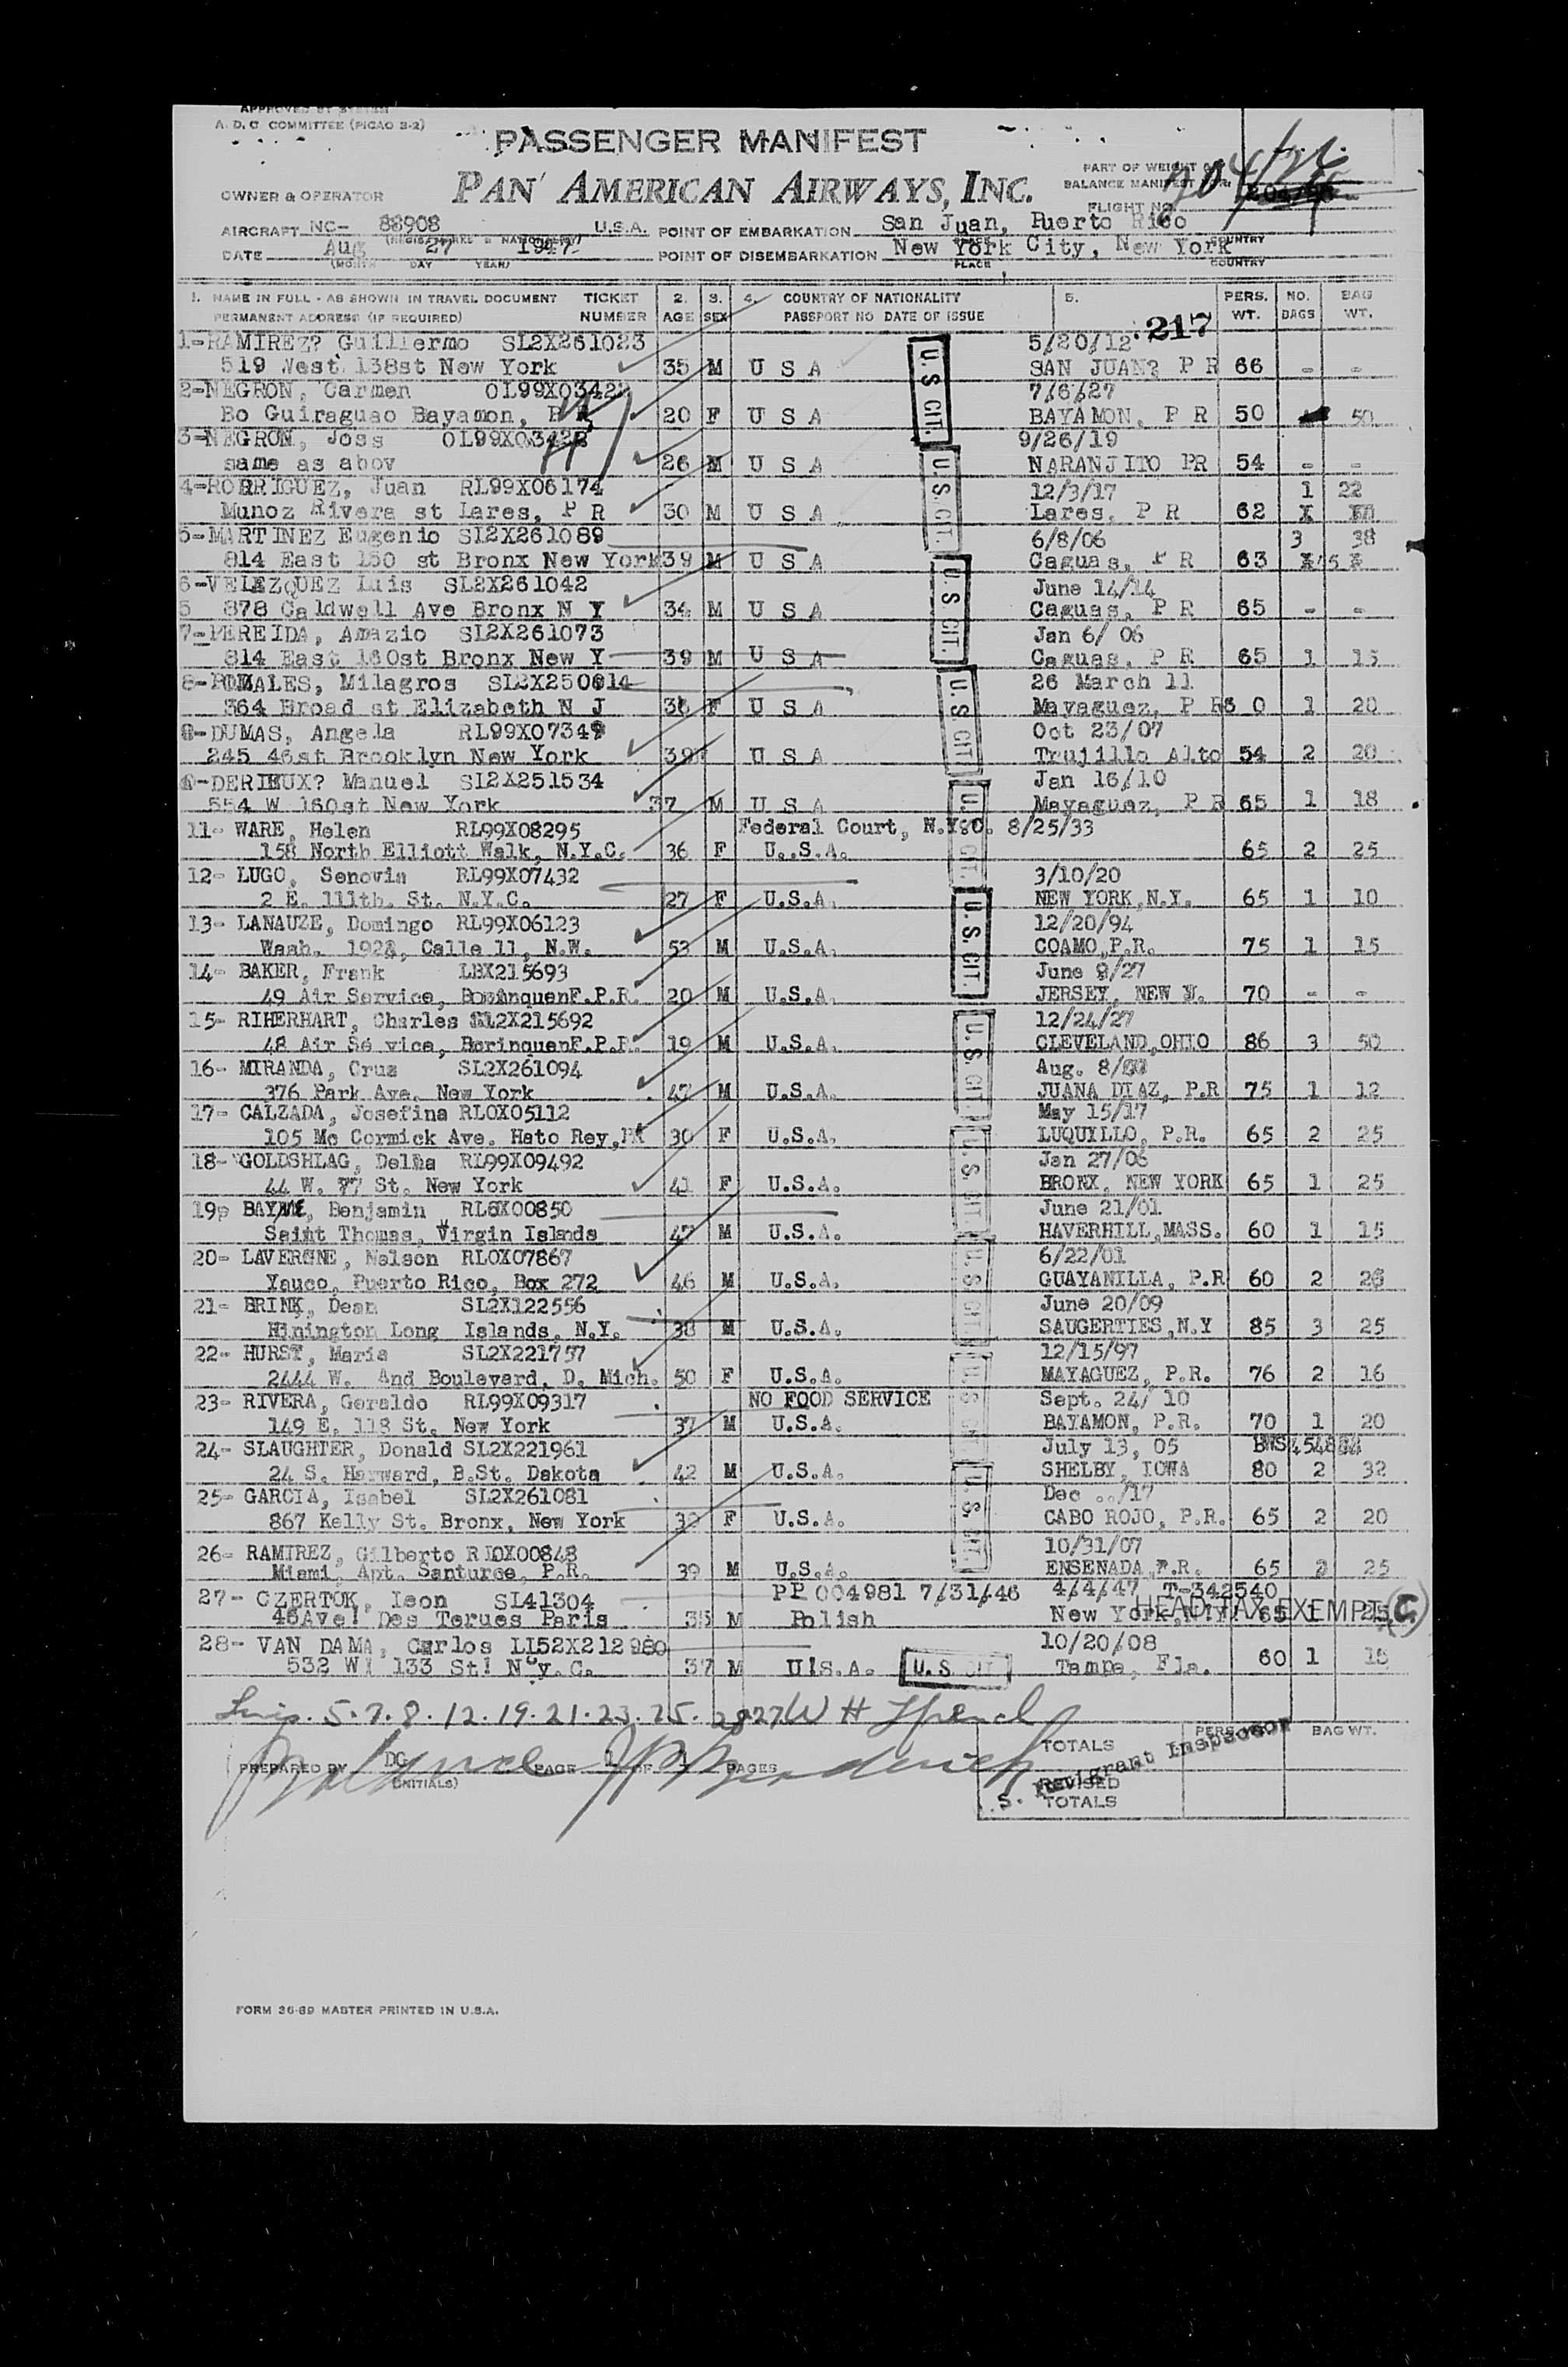 APPROVED BY
A. D. C. COMMITTEE (PICAO 3-2)
PASSENGER MANIFEST
PAN AMERICAN AIRWAYS, INC.
PART OF WEIGHT
BALANCE MANIFEST
OWNER & OPERATOR
FLIGHT NO.
204/26
AIRCRAFT NC- 88908 U.S.A. POINT OF EMBARKATION San Juan, Puerto Rico
DATE Aug 27 1947 POINT OF DISEMBARKATION New York City, New York
(MONTH DAY YEAR) PLACE COUNTRY
1. NAME IN FULL - AS SHOWN IN TRAVEL DOCUMENT TICKET 2. 3. 4. COUNTRY OF NATIONALITY 5. PERS. NO. BAG
PERMANENT ADDRESS (IF REQUIRED) NUMBER AGE SEX PASSPORT NO DATE OF ISSUE WT. BAGS WT.
217
1-RAMIREZ? Guillermo SL2X261023 5/20/12
519 West 138st New York 35 M U S A SAN JUAN? P R 66 - -
2-NEGRON, Carmen OL99X03422 7/6/27
Bo Guiraguao Bayamon, P R 20 F U S A BAYAMON, P R 50 50
3-NEGRON, Joss OL99X03422 9/26/19
same as abov 26 M U S A NARANJITO PR 54 - -
4-RODRIGUEZ, Juan RL99X06174 12/3/17 1 22
Munoz Rivera st Lares, P R 30 M U S A Lares, P R 62
5-MARTINEZ Eugenio SL2X261089 6/8/06 3 38
814 East 150 st Bronx New York 39 M U S A Caguas, P R 63
6-VELEZQUEZ Luis SL2X261042 June 14/14
5 878 Caldwell Ave Bronx N Y 34 M U S A Caguas, P R 65 - -
7-PEREIDA, Amazio SL2X261073 Jan 6/ 06
814 East 160st Bronx New Y 39 M U S A Caguas, P R 65 1 15
8- Milagros SL2X250614 26 March 11
364 Broad st Elizabeth N J 36 F U S A Mayaguez, P R 1 20
-DUMAS, Angela RL99X07349 Oct 23/07
245 46st Brooklyn New York 39 U S A Trujillo Alto 54 2 20
-DERIEUX? Manuel SL2X251534 Jan 16/10
554 W 160st New York 37 M U S A Mayaguez, P R 65 1 18
11- WARE, Helen RL99X08295 Federal Court, N.Y.C. 8/25/33
158 North Elliott Walk, N.Y.C. 36 F U..S.A. 65 2 25
12- LUGO, Senovia RL99X07432 3/10/20
2 E. 111th. St. N.Y.C. 27 F U.S.A. NEW YORK,N.Y. 65 1 10
13- LANAUZE, Domingo RL99X06123 12/20/94
Wash. 1928, Calle 11, N.W. 53 M U.S.A. COAMO,P.R. 75 1 15
14- BAKER, Frank LBX215693 June 9/27
49 Air Service, BorinquenF.P.R. 20 M U.S.A. JERSEY, NEW J. 70 - -
15- RIHERHART, Charles SL2X215692 12/24/27
48 Air Se vice, BorinquenF.P.R. 19 M U.S.A. CLEVELAND,OHIO 86 3 50
16- MIRANDA, Cruz SL2X261094 Aug. 8/00
376 Park Ave. New York 47 M U.S.A. JUANA DIAZ, P.R 75 1 12
17- CALZADA, Josefina RLOX05112 May 15/17
105 Mc Cormick Ave. Hato Rey,PR 30 F U.S.A. LUQUILLO, P.R. 65 2 25
18- GOLDSHLAG, Delma RL99X09492 Jan 27/06
44 W. 77 St. New York 41 F U.S.A. BRONX, NEW YORK 65 1 25
19- BAYNE, Benjamin RL6X00850 June 21/01
Saint Thomas, Virgin Islands 47 M U.S.A. HAVERHILL,MASS. 60 1 15
20- LAVERGNE, Nelson RLOX07867 6/22/01
Yauco, Puerto Rico, Box 272 46 M U.S.A. GUAYANILLA, P.R 60 2 26
21- BRINK, Dean SL2X122556 June 20/09
Hinington Long Islands, N.Y. 38 M U.S.A. SAUGERTIES,N.Y 85 3 25
22- HURST, Maria SL2X221757 12/15/97
2444 W. And Boulevard, D. Mich. 50 F U.S.A. MAYAGUEZ, P.R. 76 2 16
23- RIVERA, Geraldo RL99X09317 NO FOOD SERVICE Sept. 24/ 10
149 E. 118 St. New York 37 M U.S.A. BAYAMON, P.R. 70 1 20
24- SLAUGHTER, Donald SL2X221961 July 13, 05
24 S. Harward, B.St. Dakota 42 M U.S.A. SHELBY, IOWA 80 2 32
25- GARCIA, Isabel SL2X261081 Dec ../17
867 Kelly St. Bronx, New York 30 F U.S.A. CABO ROJO, P.R. 65 2 20
26- RAMIREZ, Gilberto RLOX00848 10/31/07
Miami, Apt. Santurce, P.R. 39 M U.S.A. ENSENADA P.R. 65 2 25
27- CZERTOK, Leon SL41304 PP 004981 7/31/46 4/4/47 T-342540
46Ave! Des Ternes Paris 35 M Polish New York,N!Y! 65 1 25
HEAD TAX EXEMPT (C)
28- VAN DAMA, Carlos LL52X212980 10/20/08
532 W! 133 St! N y.C. 37 M U!S.A. U.S. CIT Tampa, Fla. 60 1 15
U.S. CIT.
U.S. CIT.
U.S. CIT.
U.S. CIT.
U.S. CIT.
U.S. CIT.
U.S. CIT.
U.S. CIT.
U.S. CIT.
U.S. CIT.
U.S. CIT.
5.7.8.12.19.21.23.25. 28 27 W H
PREPARED BY DG PAGE 1 OF 1 PAGES
(INITIALS)
TOTALS PERS. WT. BAG WT.
S. Immigrant Inspector
REVISED
TOTALS
FORM 36-89 MASTER PRINTED IN U.S.A.